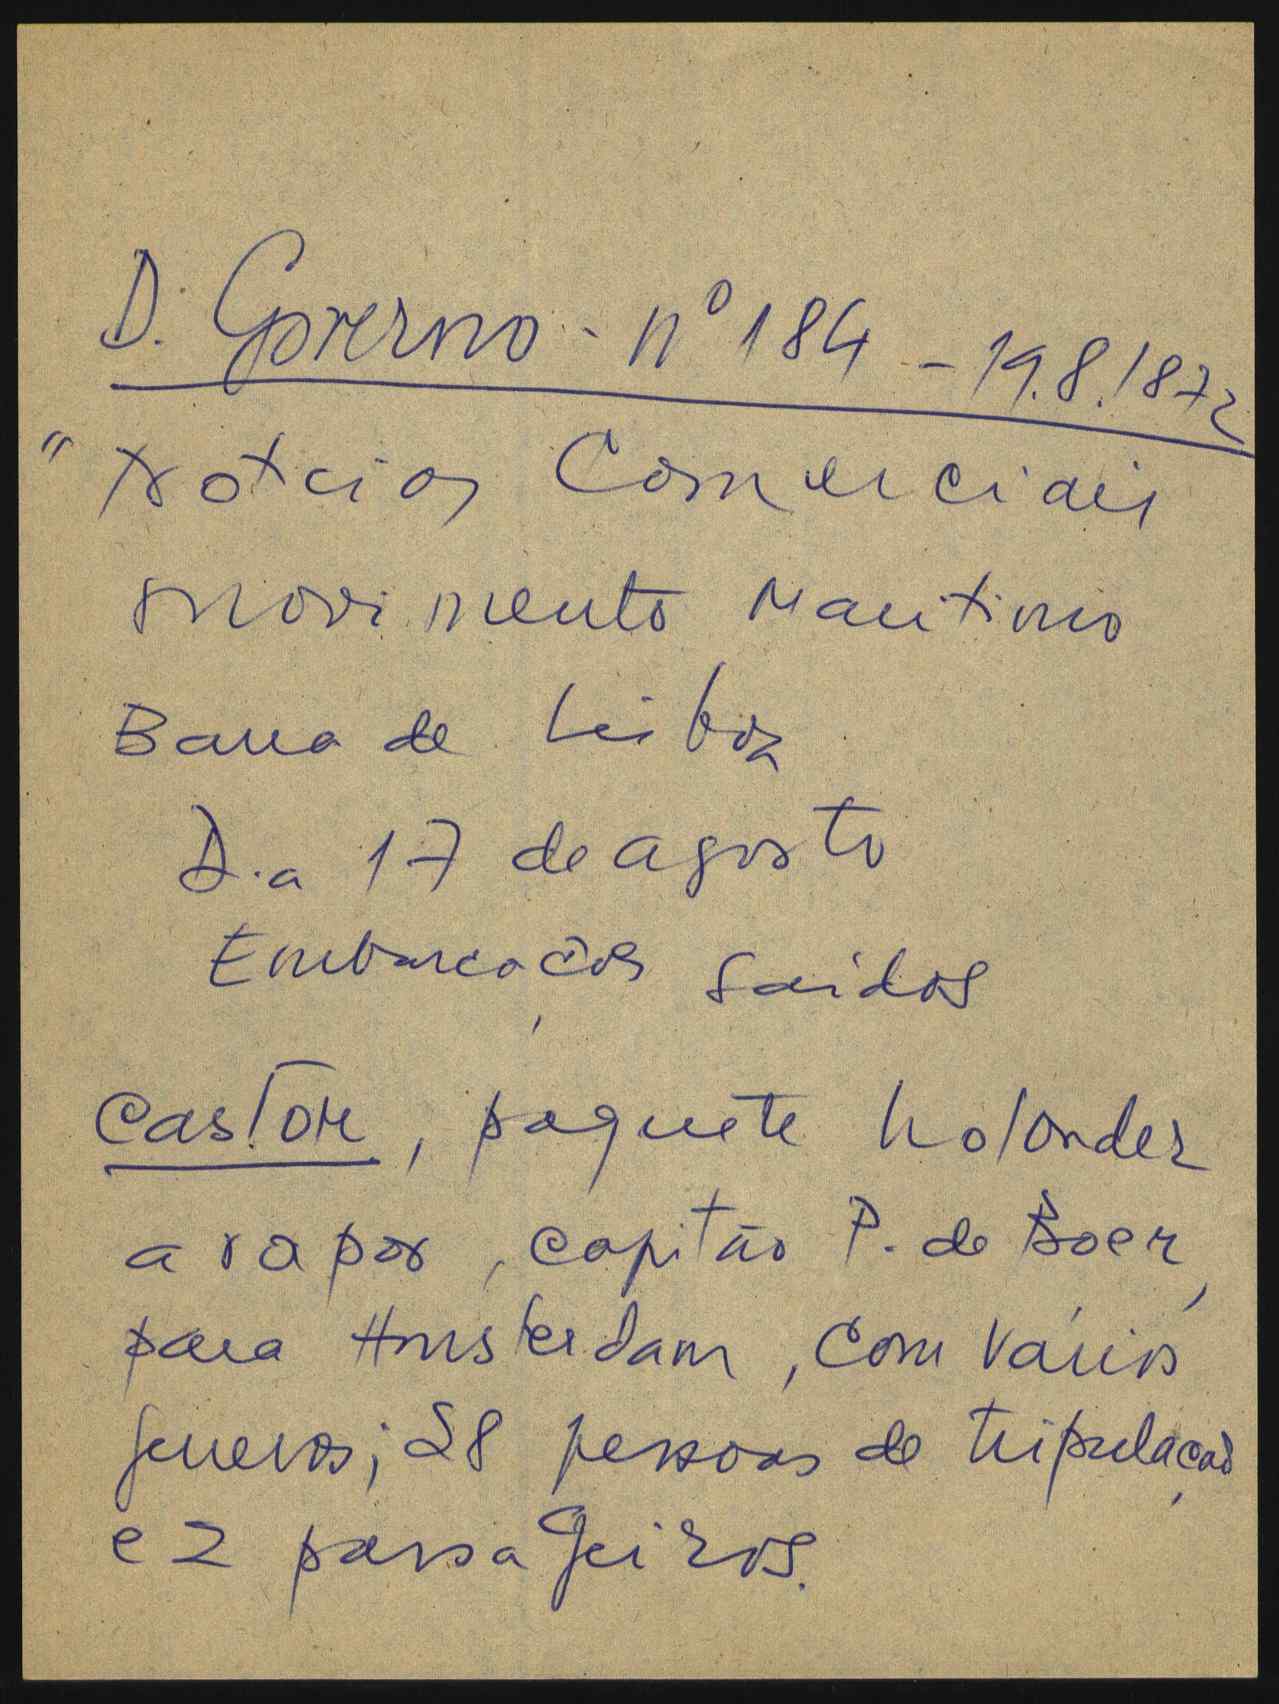 D. Governo - nº 184 - 19.8.1872
" Noticias Comerciais
Movimento Maritimo
Barra de Lisboa
Dia 17 de agosto
Embarcações saídas
Castor, paquete holandez
a vapor, capitão P. de Boer,
para Amsterdam, com vários
generos; 28 pessoas de tripulação
e 2 passageiros.